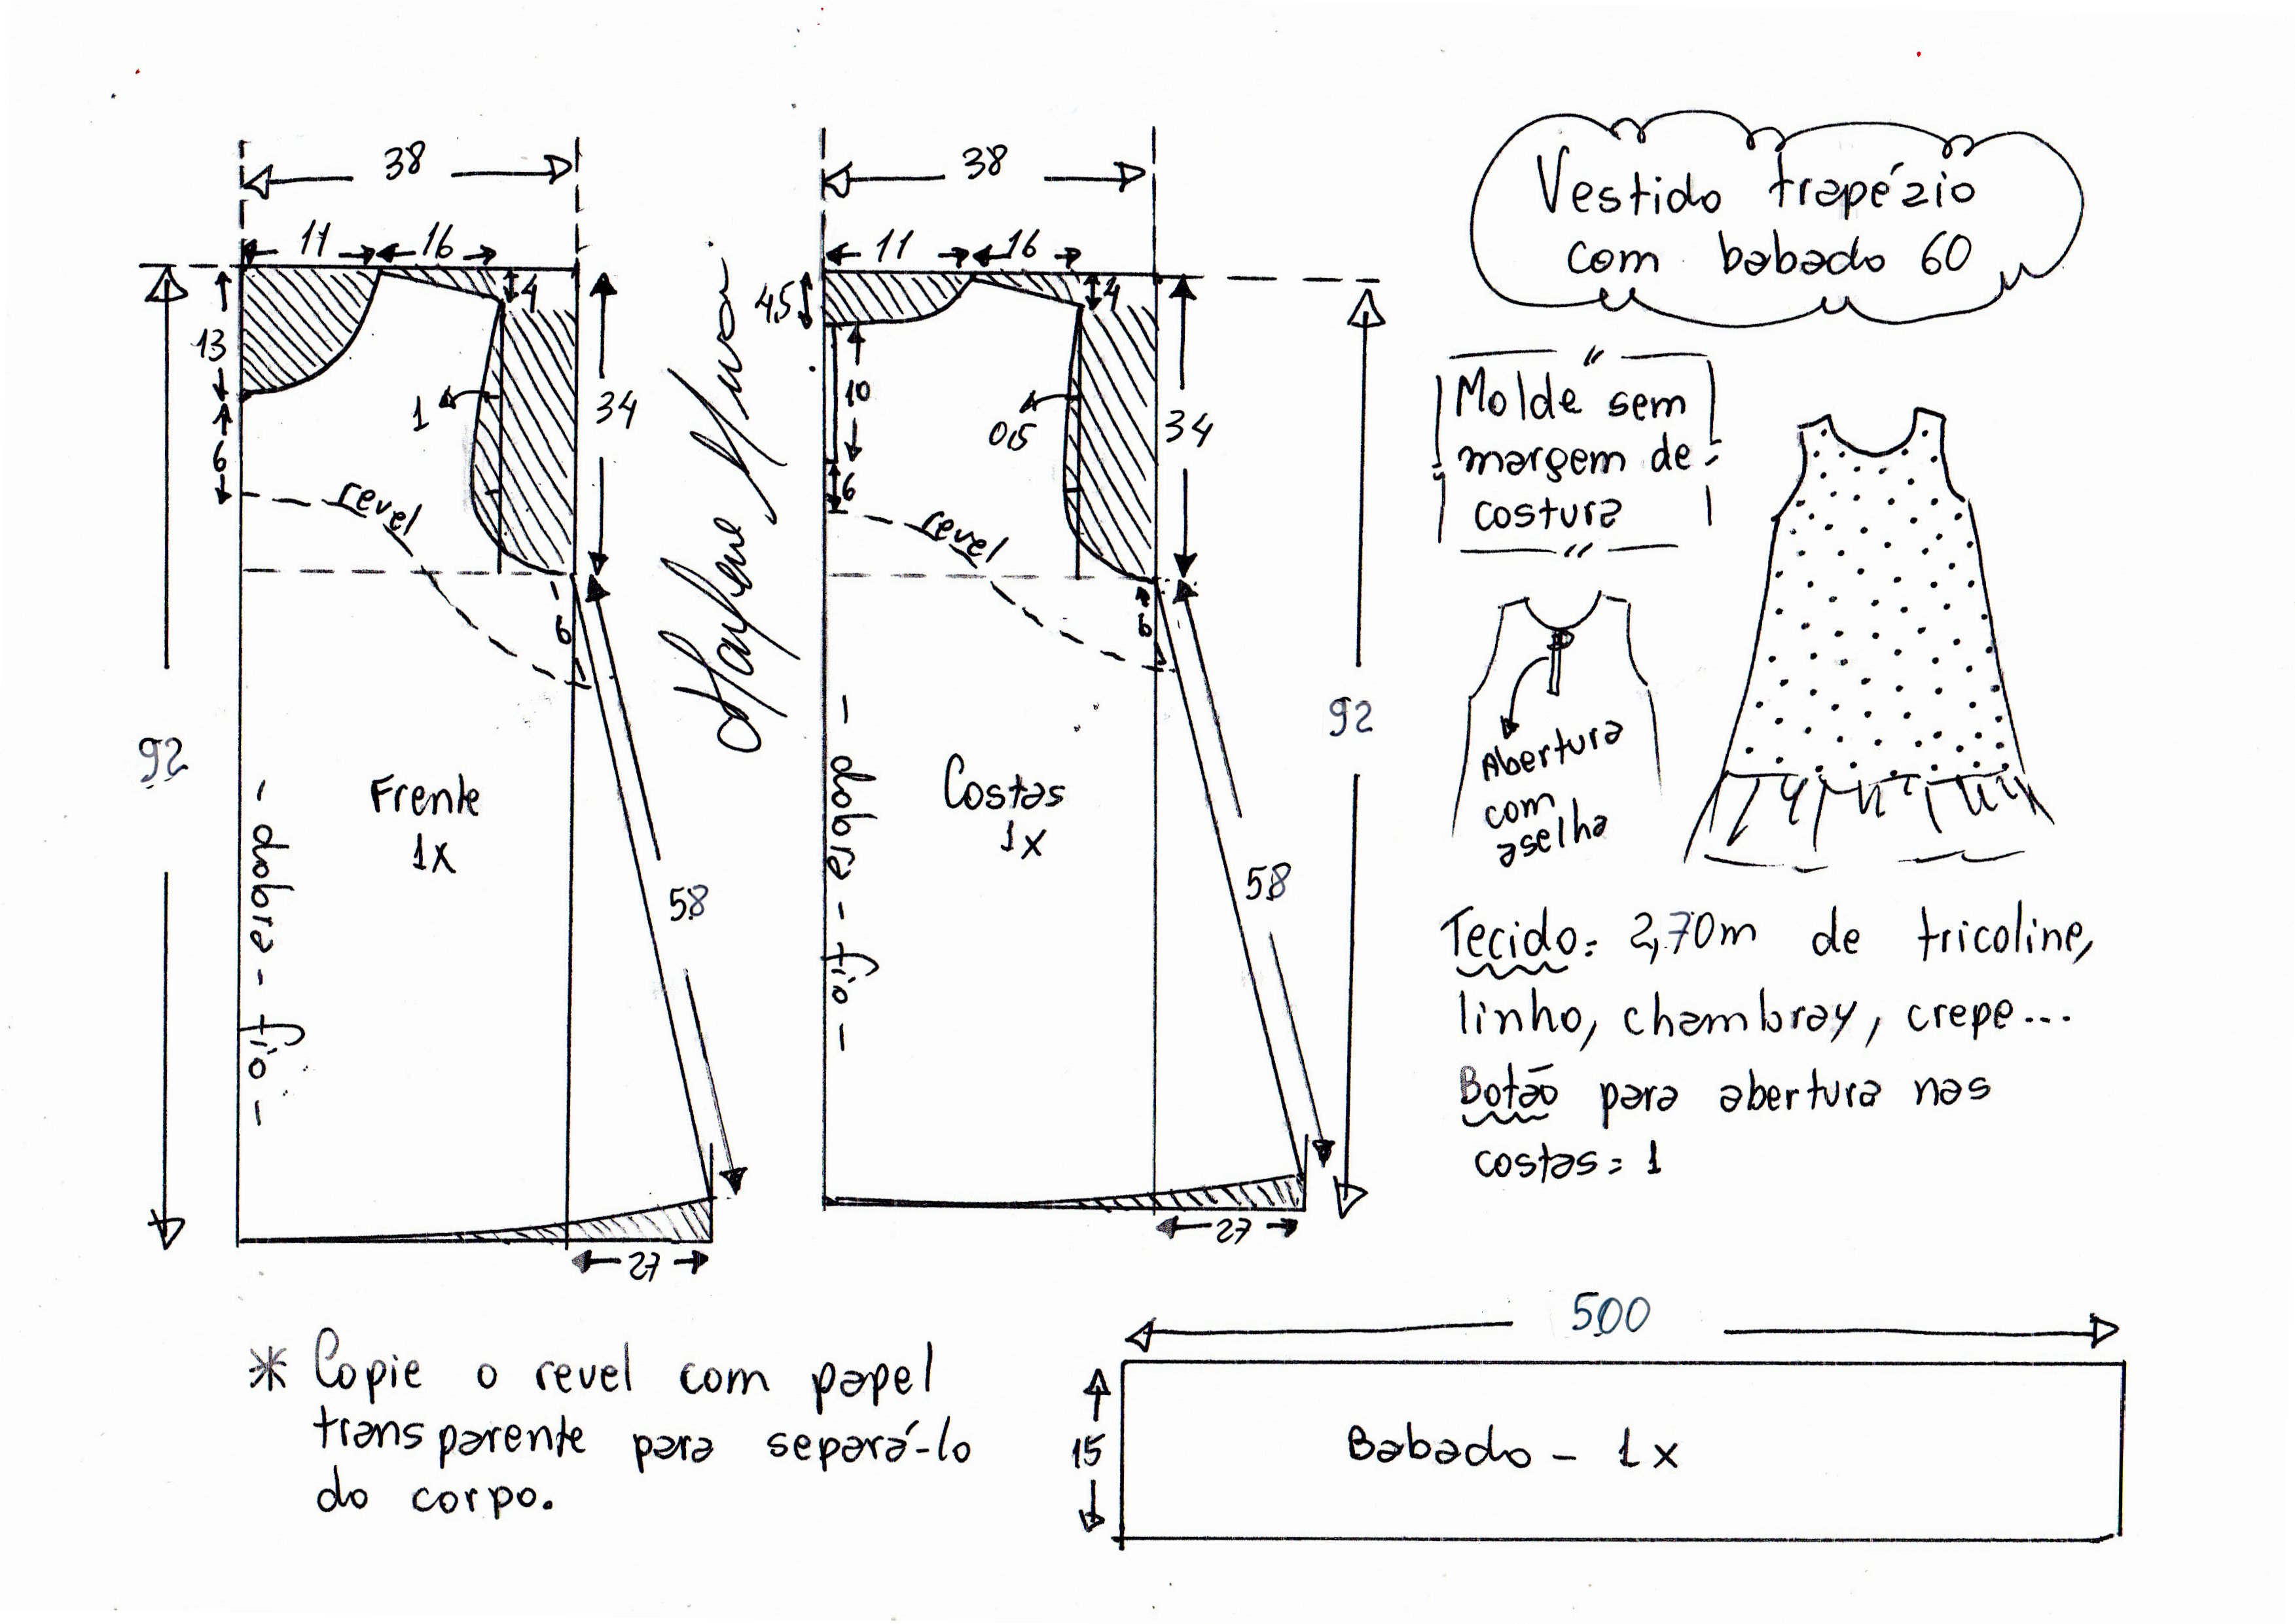 38
11
16
4
13
6
1
34
revel
6
92
58
Frente
1x
- dobra - fio -
27
Marlene Mukai
38
11
16
4
4,5
10
6
0,5
34
revel
6
92
58
Costas
1x
- dobra - fio -
27
Vestido trapézio
com babado 60
Molde sem
margem de
costura
Abertura
com
aselha
Tecido: 2,70m de tricoline,
linho, chambray, crepe...
Botão para abertura nas
costas = 1
* Copie o revel com papel
transparente para separá-lo
do corpo.
500
15
Babado - 1x